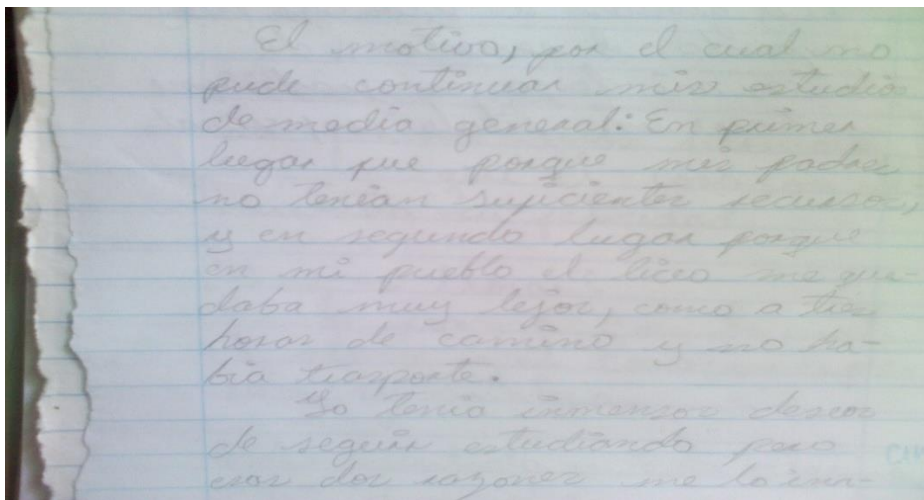 El motivo, por el cual no
pude continuar mis estudios
de media general: En primer
lugar fue porque mis padres
no tenian suficientes recursos,
y en segundo lugar porque
en mi pueblo el liceo me que-
daba muy lejos, como a tres
horas de camino y no ha-
bia trasporte.
Yo tenia inmensos deseos
de seguir estudiando pero
esas dos razones me lo im-